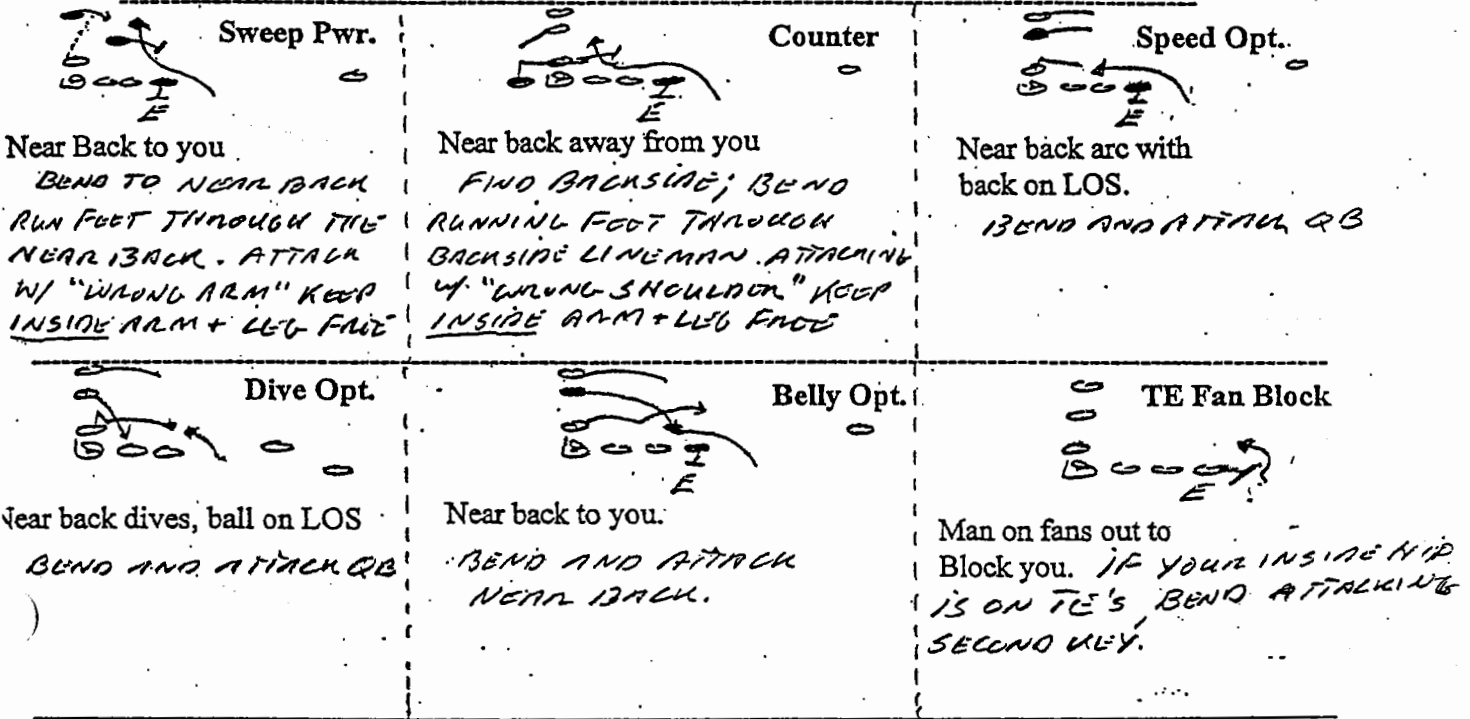 Sweep Pwr.
E
Near Back to you
BEND TO NEAR BACK
RUN FEET THROUGH THE
NEAR BACK. ATTACK
W/ "WRONG ARM" KEEP
INSIDE ARM + LEG FREE
Counter
E
Near back away from you
FIND BACKSIDE; BEND
RUNNING FEET THROUGH
BACKSIDE LINEMAN. ATTACKING
W/ "WRONG SHOULDER" KEEP
INSIDE ARM + LEG FREE
Speed Opt.
E
Near back arc with
back on LOS.
BEND AND ATTACK QB
Dive Opt.
Near back dives, ball on LOS
BEND AND ATTACK QB
Belly Opt.
E
Near back to you.
BEND AND ATTACK
NEAR BACK.
TE Fan Block
E
Man on fans out to
Block you. IF YOUR INSIDE HIP
IS ON TE'S, BEND ATTACKING
SECOND KEY.